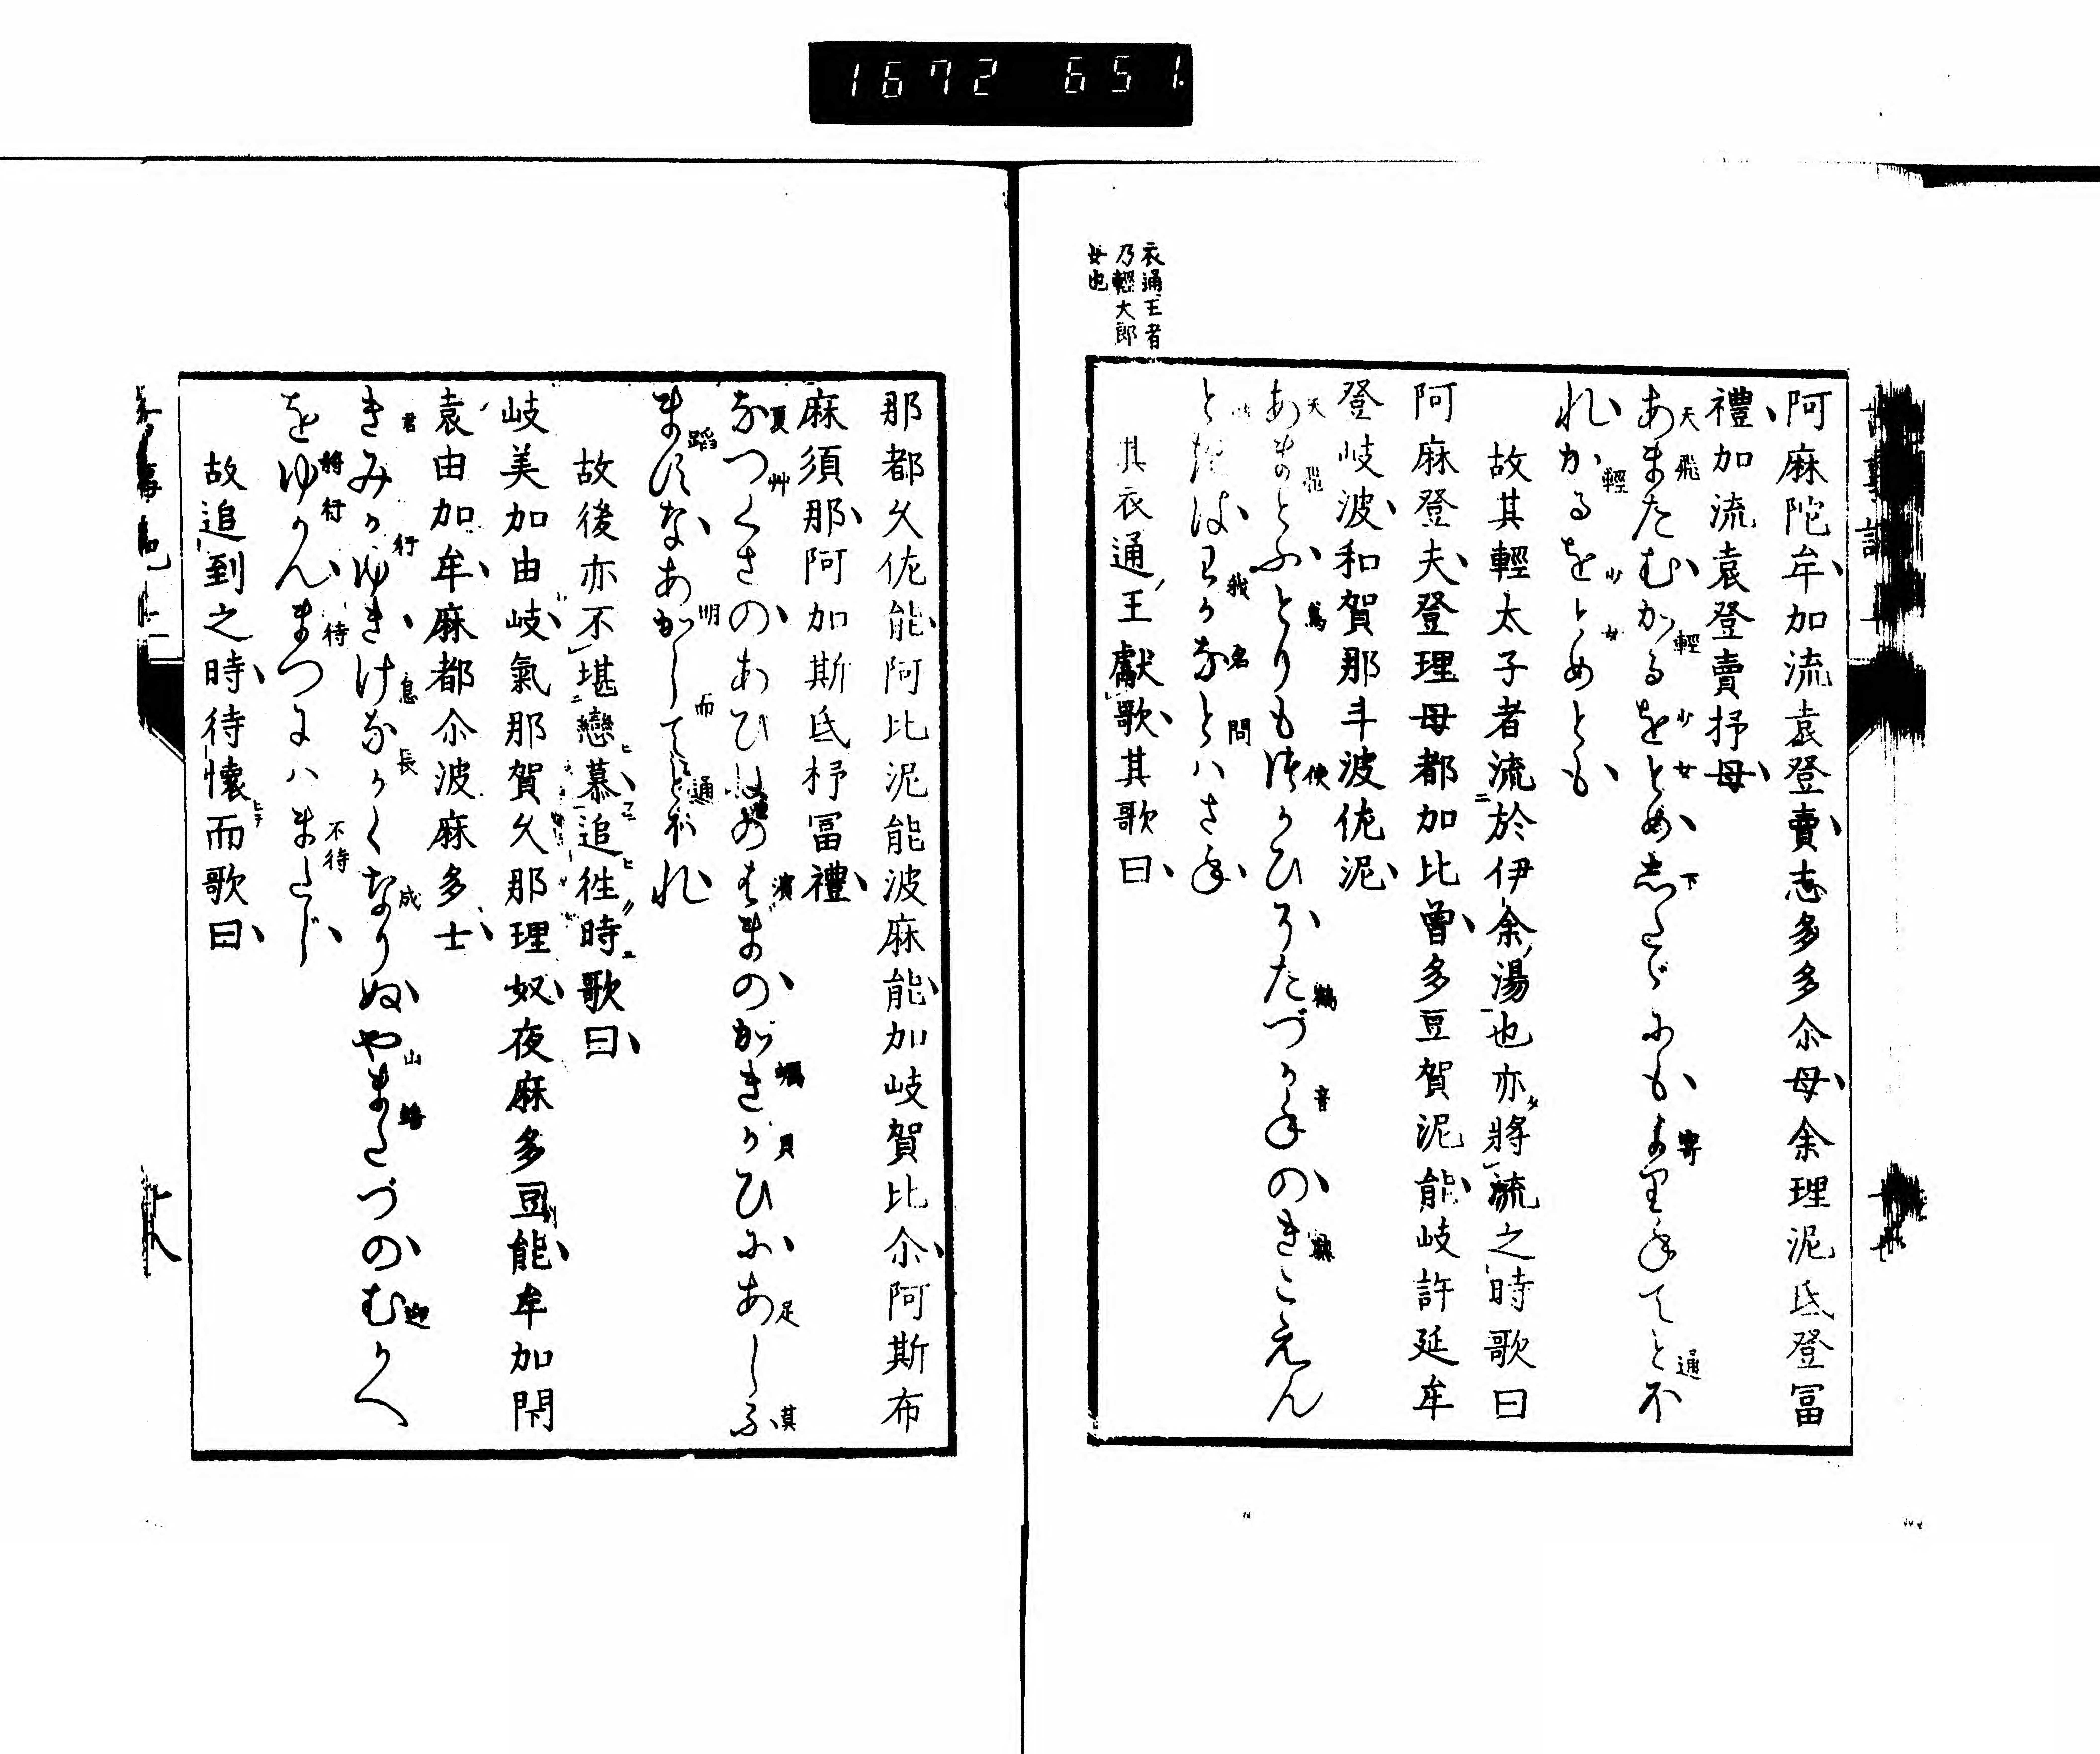 1672 651
衣通王者
乃輕大郎
女也
阿麻陀牟加流袁登賣志多多尒母余理泥氐登冨
禮加流袁登賣抒母
あまたむかるをとめしたゞにもよりねてとふ
天飛輕少女下寄通
れかるをとめとも
輕少女
故其輕太子者流於伊余湯也亦將流之時歌曰
阿麻登夫登理母都加比曽多豆賀泥能岐許延牟
登岐波和賀那斗波佐泥
あまとふとりもつかひそたづかねのきこえん
天飛鳥使鶴音聞
ときはわかなとハさね
我名問
其衣通王獻歌其歌曰
那都久佐能阿比泥能波麻能加岐賀比尒阿斯布
麻須那阿加斯氐杼冨禮
なつくさのあひねのはまのかきかひにあしふ
夏艸濱蠣貝足
ますなあかしてとほれ
蹈明而通
故後亦不堪戀慕追徃時歌曰
岐美加由岐氣那賀久那理奴夜麻多豆能牟加閇
袁由加牟麻都尒波麻多士
きみかゆきけながくなりぬやまたづのむかへ
君行息長成山迎
をゆかんまつにハまたじ
將行待不待
故追到之時待懷而歌曰